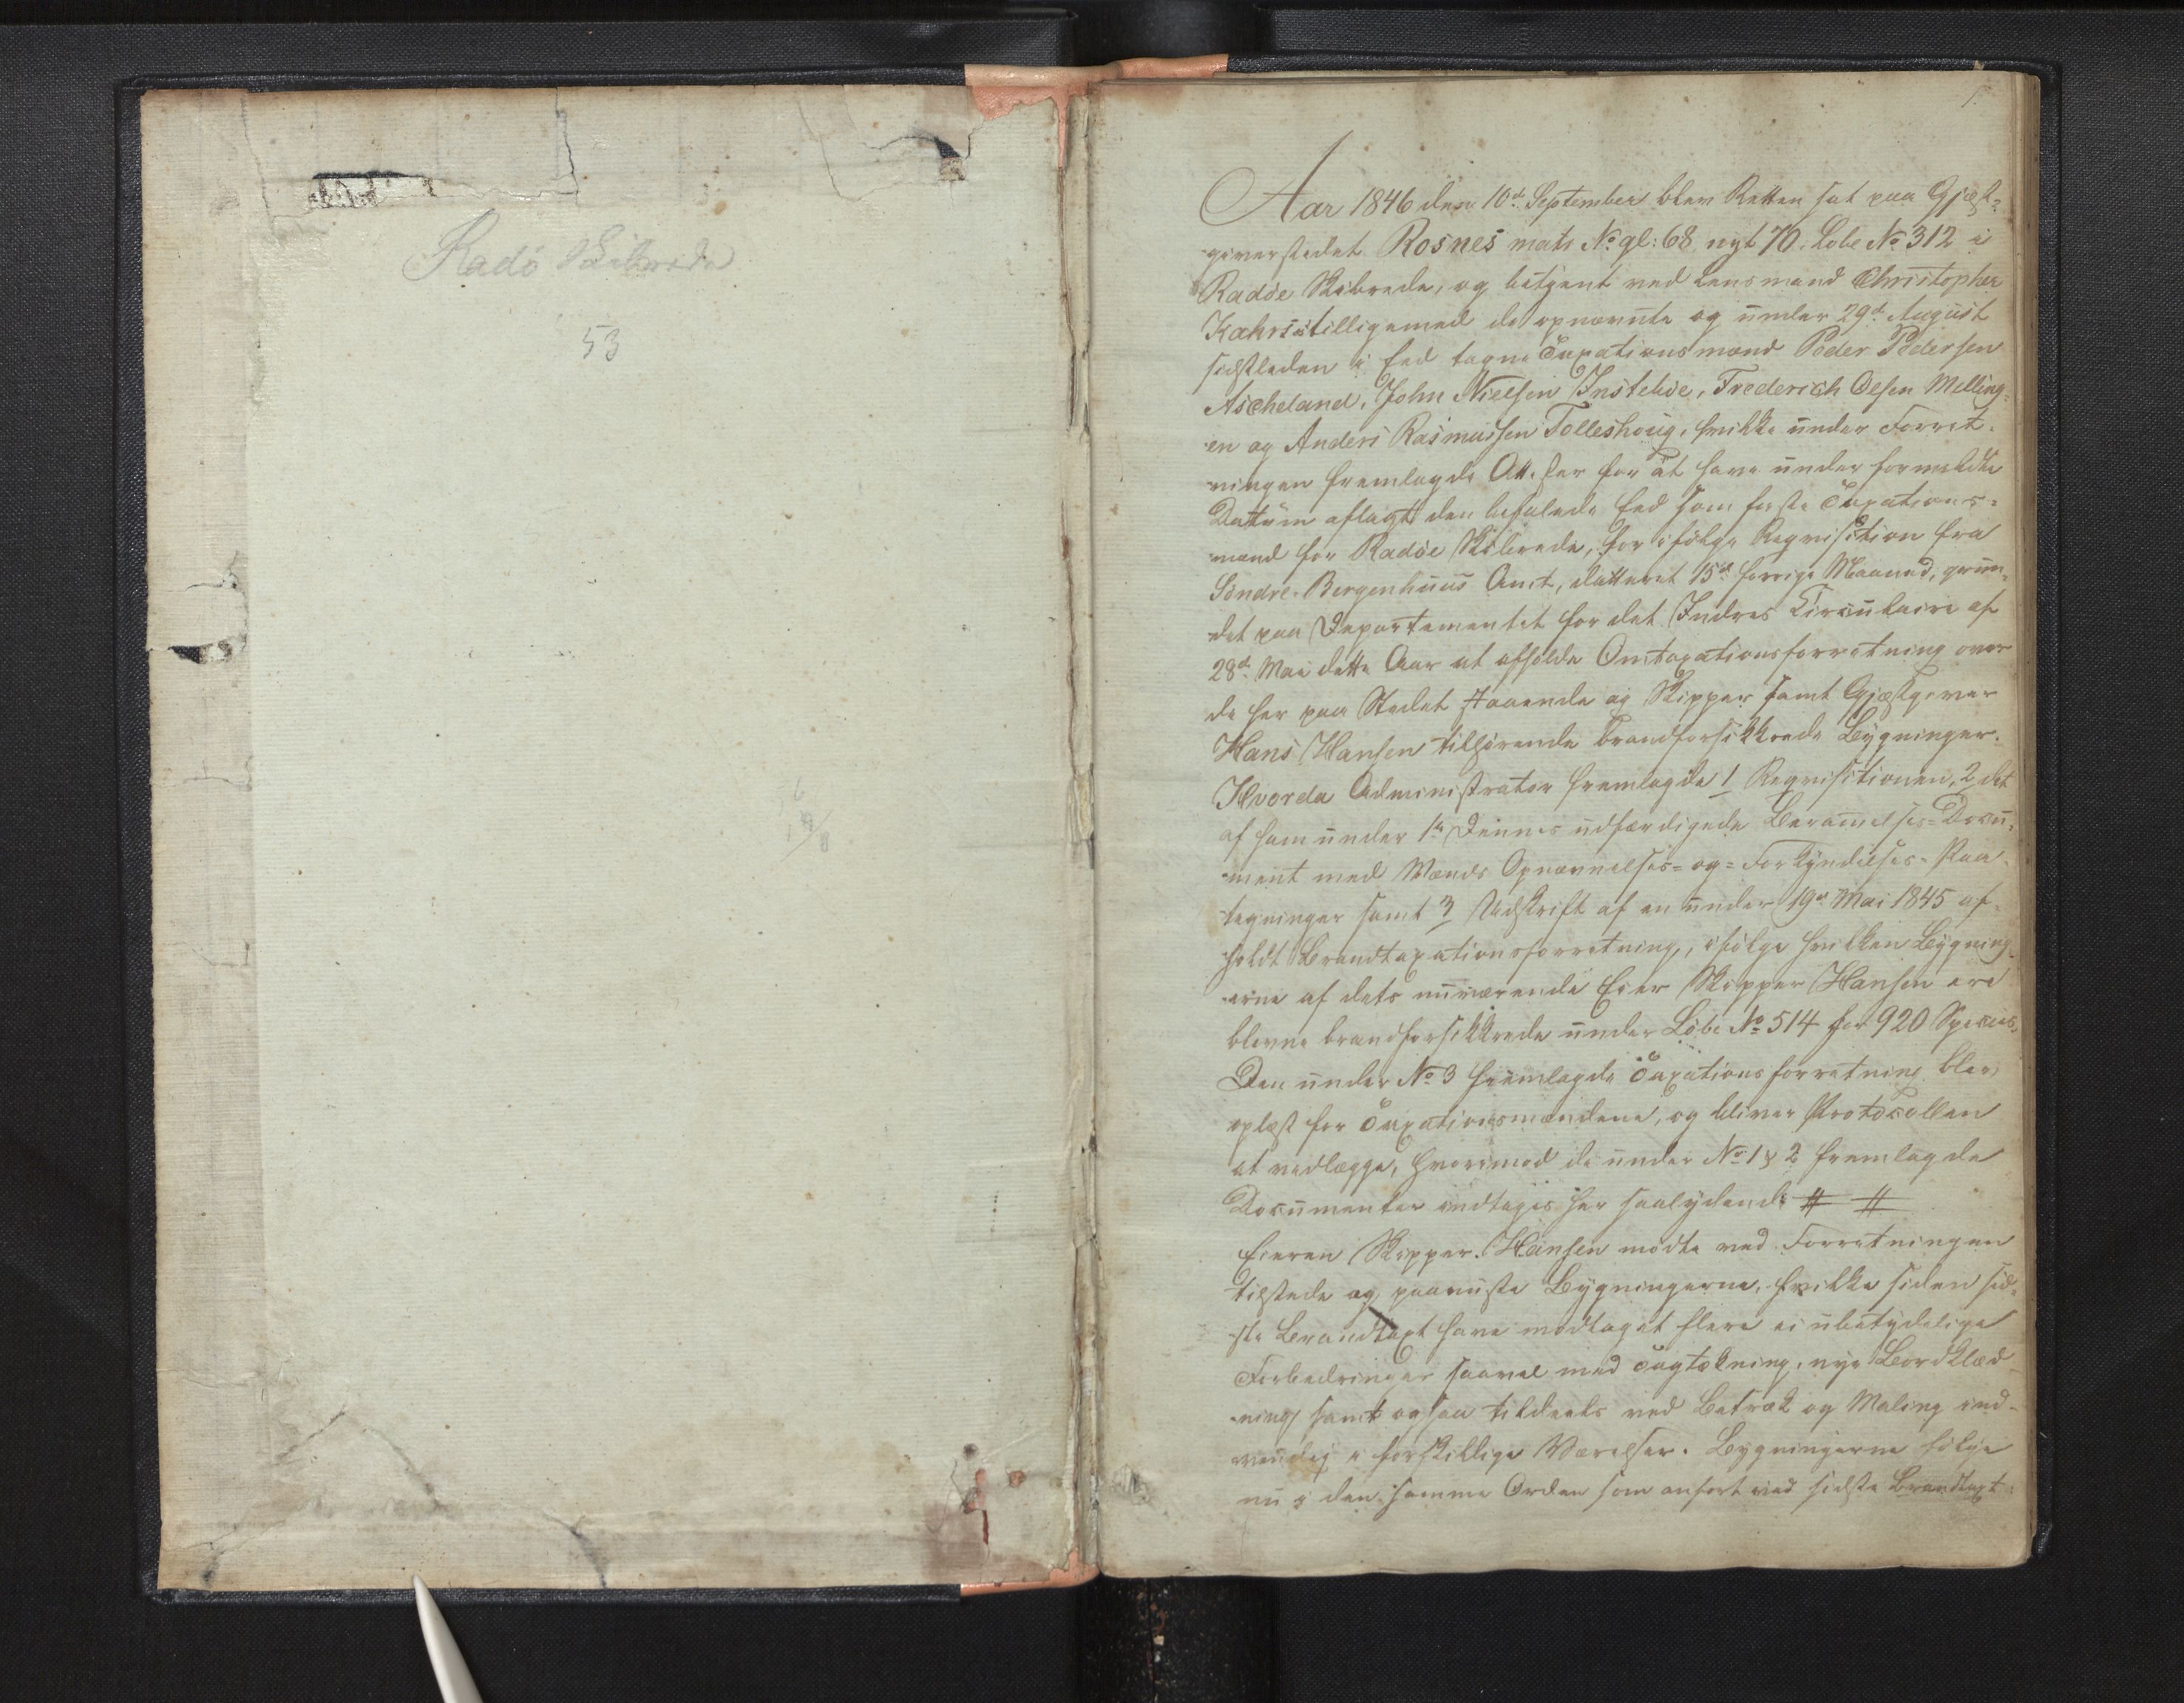 Radö Skibrede
53
1.
Aar 1846 den 10d September blev Retten sat paa Gjæst-
giverstedet Rosnes matr No gl: 68 nyt 70. Løbe No 312 i
Radöe Skibrede, og betjent ved Lensmand Christopher
Kahrs tilligemed de opnævnte og under 29d August
sidstleden i Eed tagne Taxationsmænd Peder Pedersen
Ascheland, John Nielsen Instebøe, Frederich Olsen Melling-
en og Anders Rasmussen Tolleshoug, hvilke under Forret-
ningen fremlagde Attester for at have under formeldte
Dattum aflagt den befalede Eed som faste Taxations-
mænd for Radöe Skibrede, for ifölge Reqvisition fra
Söndre-Bergenhuus Amt, datteret 15d forrige Maaned, grun-
det paa Departementet for det Indres Circulaire af
28d Mai dette Aar at afholde Omtaxationsforretning over
de her paa Stedet staaende og Skipper samt Gjæstgiver
Hans Hansen tilhörende brandforsikkrede Bygninger.
Hvorda Administrator fremlagde 1 Reqvisitionen, 2 det
af ham under 1te Dennes udfærdigede Berammelses-Docu-
ment med Mænds Opnævnelses- og Forkyndelses-Paa-
tegninger samt 3 Udskrift af en under 19d Mai 1845 af-
holdt Brandtaxationsforretning, ifölge hvilken Bygning-
erne af dets nuværende Eier Skipper Hansen ere
blevne brandforsikkrede under Löbe No 514 for 920 Species.
Den under No 3 fremlagde Taxationsforretning blev
oplæst for Taxationsmændene, og bliver Protocollen
at vedlægge, hvorimod de under No 1 & 2 fremlagde
Documenter indtages her saalydende # #
Eieren Skipper Hansen mödte ved Forretningen
tilstede og paaviiste Bygningerne, hvilke siden sid-
ste Brandtaxt have modtaget flere ei ubetydelige
Forbedringer saavel med Tagtækning, nye Bordklæd-
ning samt ogsaa tildeels ved Betræk og Maling ind-
vendig i forskillige Værelser. Bygningerne fölge
nu i den samme Orden som anfört ved sidste Brandtaxt: